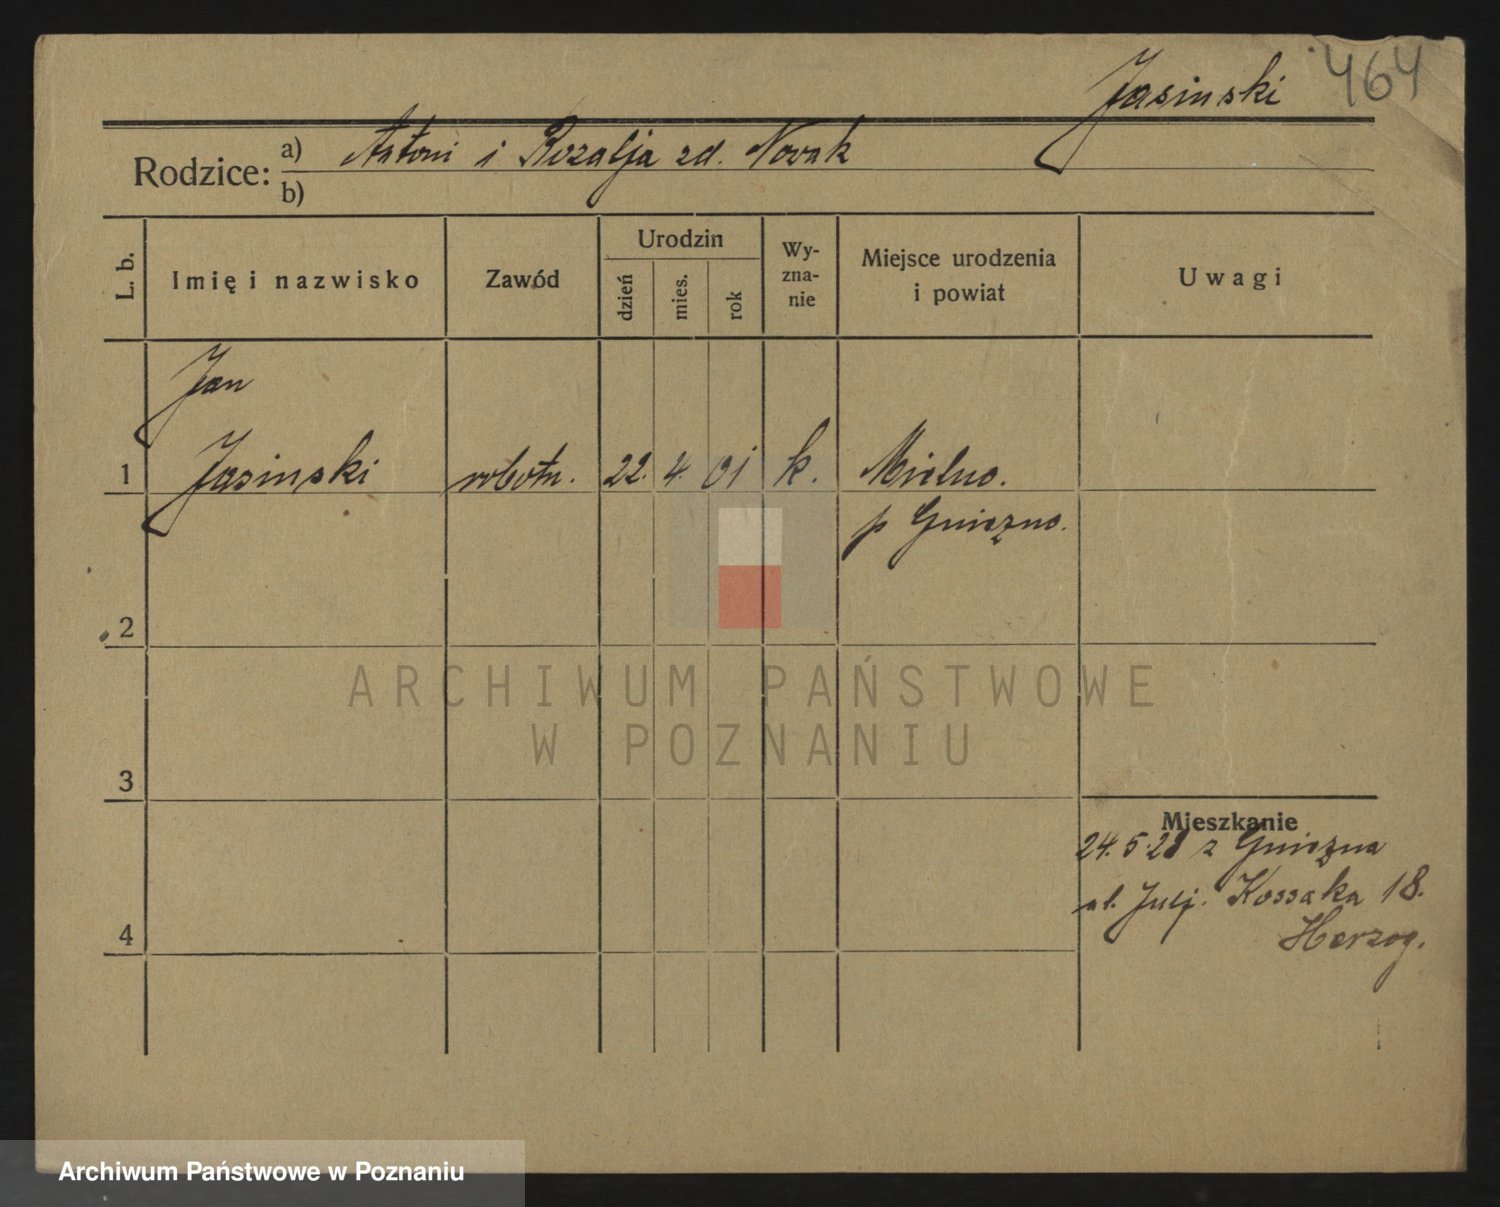 Jasinski 464
Rodzice: a) Antoni i Rozalja zd. Novak
b)
L. b. Imię i nazwisko Zawód Urodzin dzień mies. rok Wy-zna-nie Miejsce urodzenia i powiat Uwagi
Jan
1 Jasinski robotn. 22. 4. 01 k. Mielno.
p Gniezno.
2
ARCHIWUM PAŃSTWOWE
W POZNANIU
3
Mieszkanie
24. 5. 28 z Gniezna
ul. Julj. Kossaka 18.
4
Herzog.
Archiwum Państwowe w Poznaniu